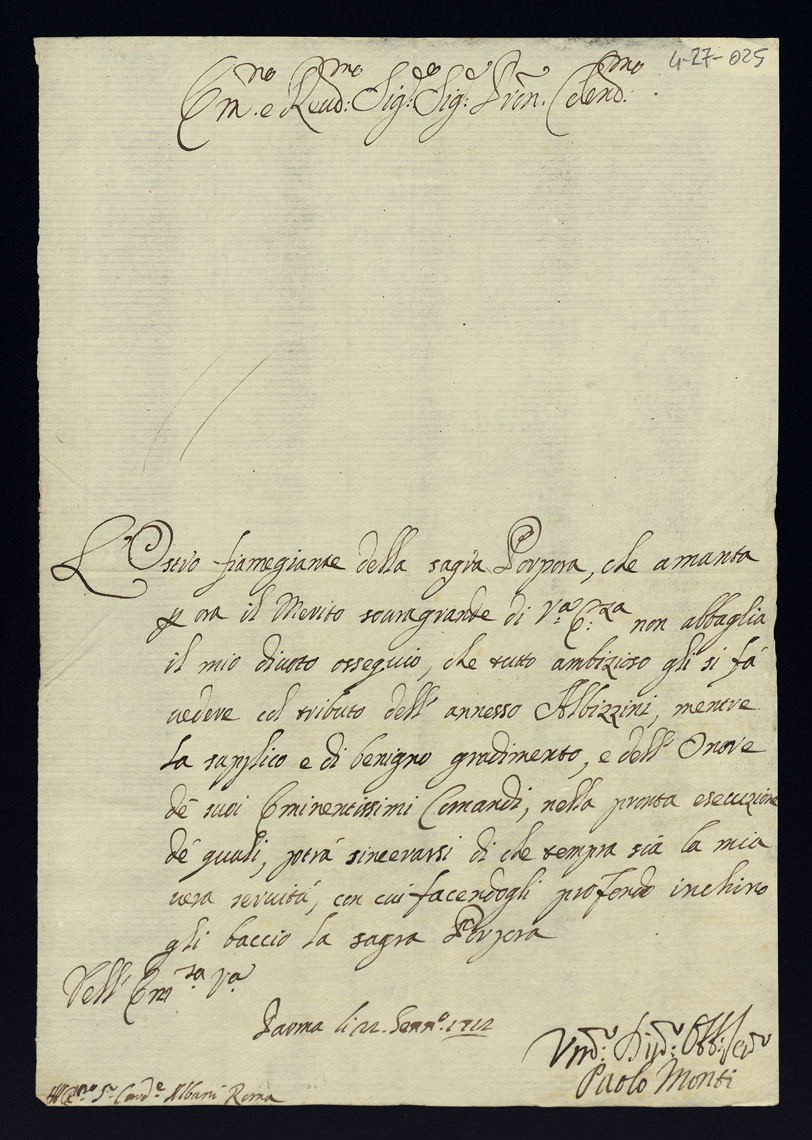 4-27-025
Em.no e Reud:mo Sig:re Sig:re Pron. Colend:mo
L'Ostro fiamegiante della sagra Porpora, che amanta
ora il Merito souragrande di V.a E.nza non abbaglia
il mio diuoto ossequio, che tutto ambizioso gli si fà
uedere col tributo dell' annesso Albizzini, mentre
la supplico e di benigno gradimento, e dell' Onore
dè suoi Eminentissimi Comandi, nella pronta esecuzione
dè quali, potrà sincerarsi di che tempra sia la mia
uera seruitù, con cui facendogli profondo inchino
gli baccio la sagra Porpora
Dell' Em.za V.a
Parma li 22. Genn.o 1712
Vmo: Diuo: Obb: Seruo
Paolo Monti
Sr. Card.e Albani Roma